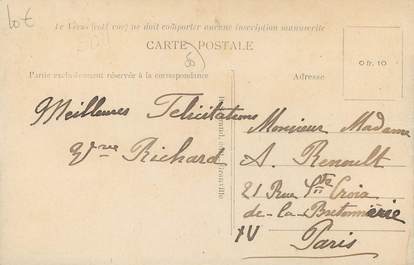 Lot
Le Verso (côté vue) ne doit comporter aucune inscription manuscrite
CARTE POSTALE
Partie exclusivement réservée à la correspondance
Adresse
0 fr. 10
Meilleures Félicitations
Vve Richard
Monsieur Madame
A. Renoult
21 Rue Ste Croix
de-la-Bretonnerie
IV
Paris